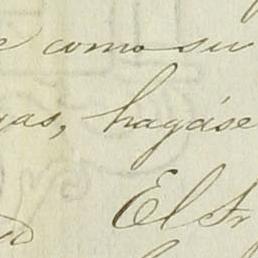 e como su
yas, hagáse
El Fr